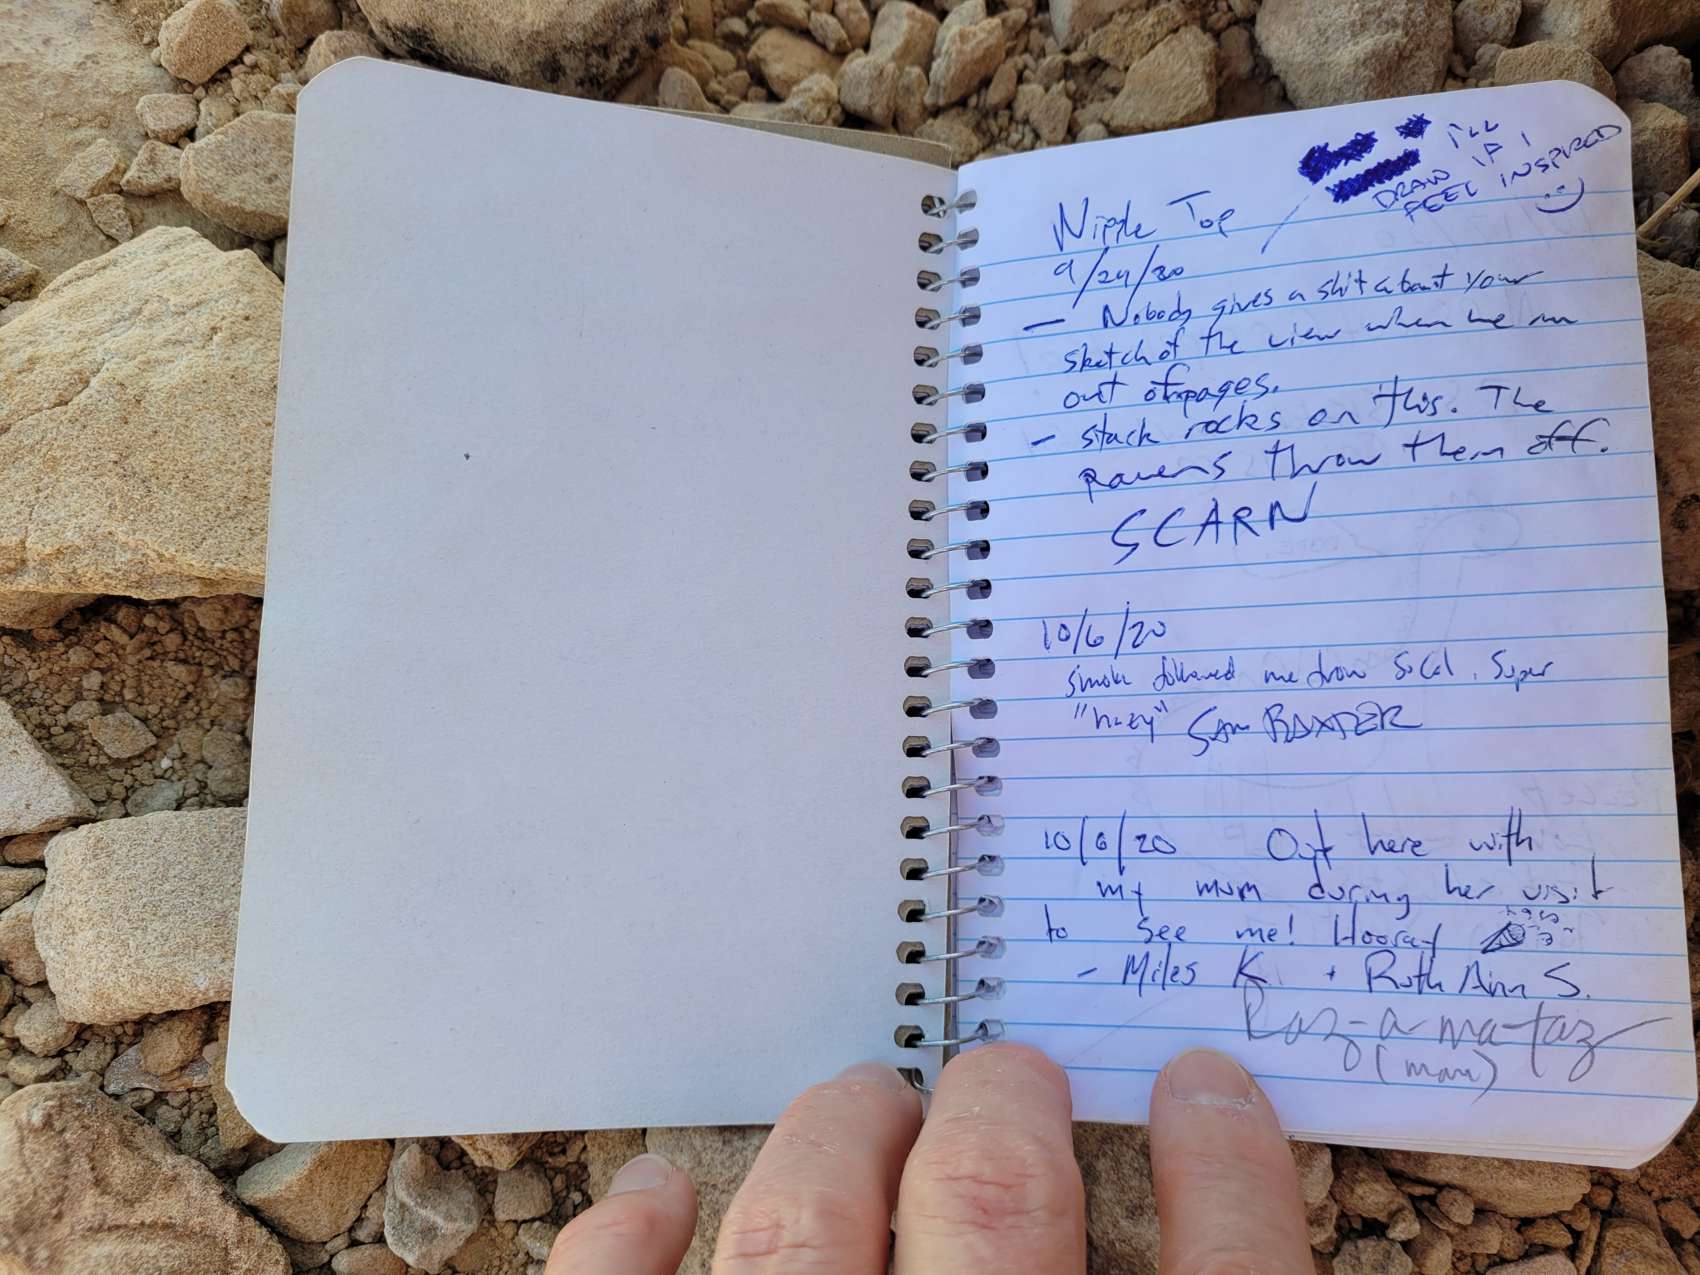 I'LL
DRAW IF I
FEEL INSPIRED
Nipple Top
9/24/20
- Nobody gives a shit about your
sketch of the view when we run
out of pages.
- stack rocks on this. The
ravens throw them off.
SCARN
10/6/20
smoke followed me from SoCal. Super
"hazy" Sam BAXTER
10/6/20 Out here with
my mum during her visit
to see me! Hooray
- Miles K. + Ruth Ann S.
Raz-a-ma-taz
(mom)